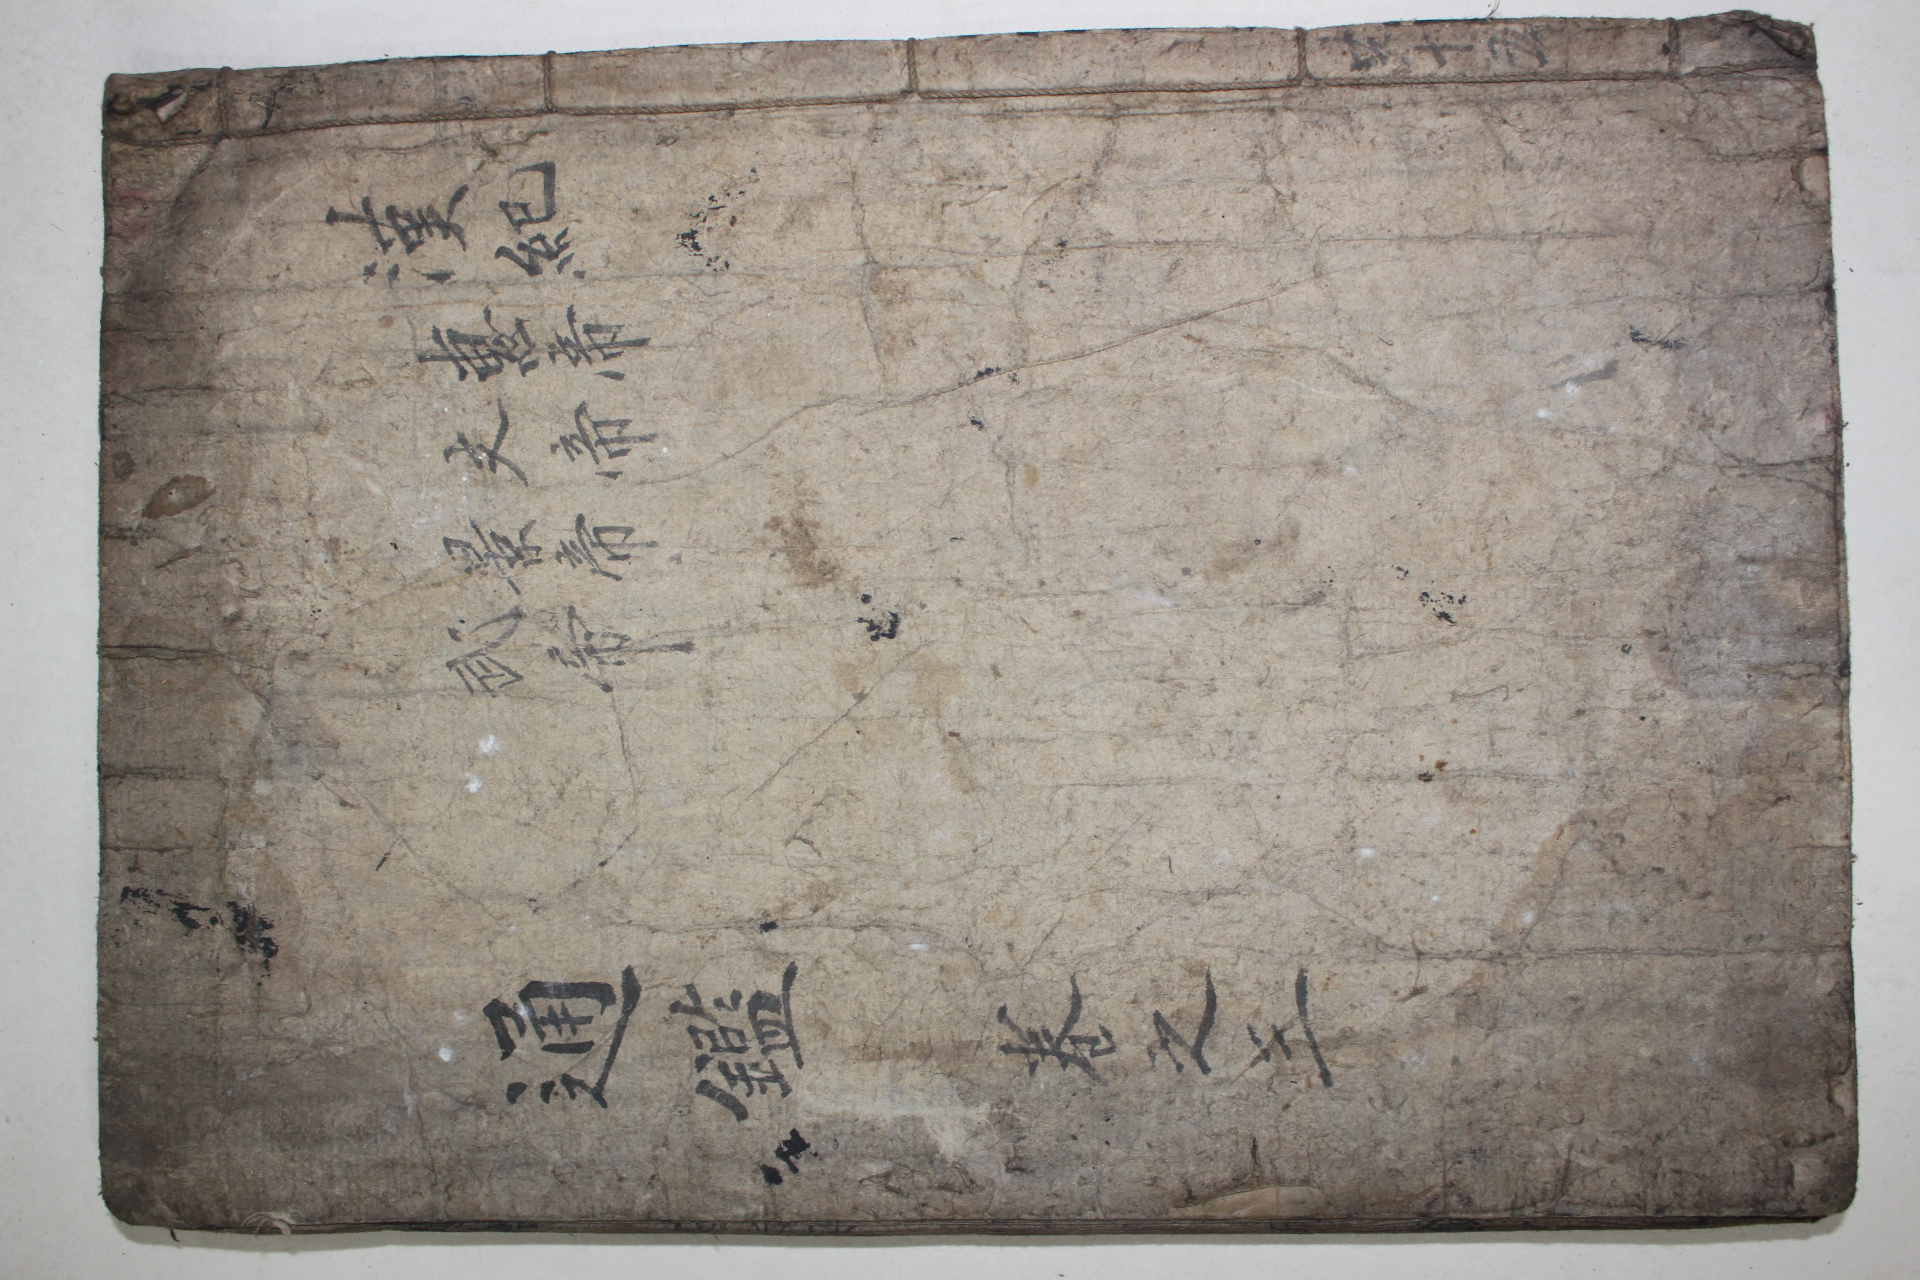 共十五
漢紀
惠帝
文帝
景帝
武帝
通鑑 卷之三